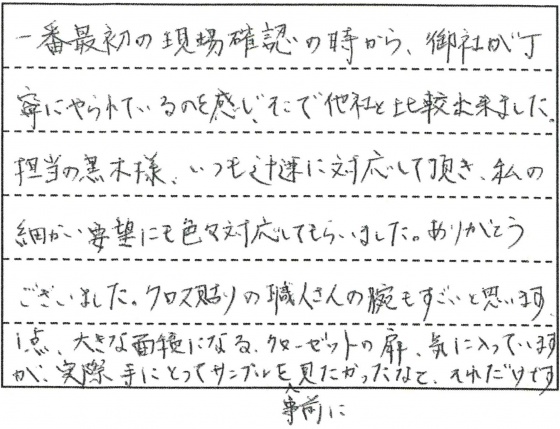 一番最初の現場確認の時から、御社が丁
寧にやられているのを感じ、そこで他社と比較出来ました。
担当の黒木様、いつも迅速に対応して頂き、私の
細かい要望にも色々対応してもらいました。ありがとう
ございました。クロス貼りの職人さんの腕もすごいと思います。
1点、大きな面積になる、クローゼットの扉、気に入っています
が、実際手にとってサンプルを見たかったなと、それだけです
事前に